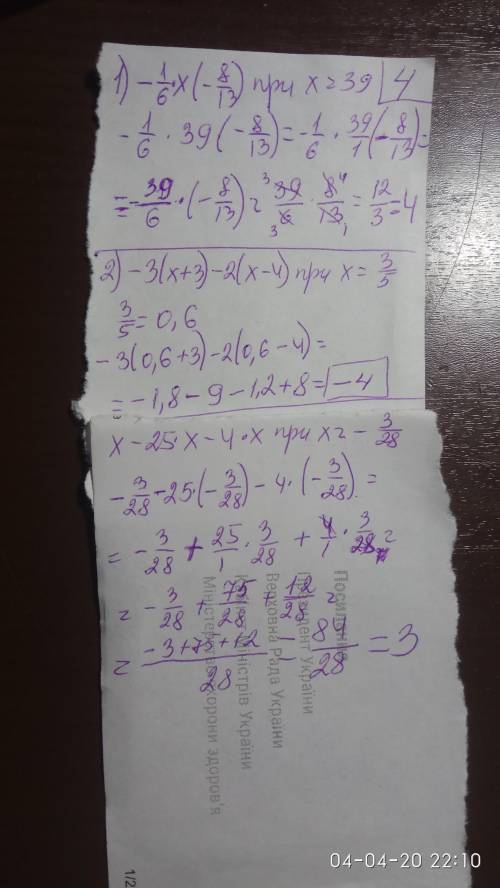 1) -1/6 · x (-8/13) при x=39 4
-1/6 · 39 (-8/13) = -1/6 · 39/1 (-8/13) =
= -39/6 · (-8/13) = 39/6 · 8/13 = 12/3 = 4
2) -3(x+3)-2(x-4) при x = 3/5
3/5 = 0,6
-3(0,6+3)-2(0,6-4)=
= -1,8-9-1,2+8= -4
x-25·x-4·x при x= -3/28
-3/28 -25·(-3/28) - 4·(-3/28) =
= -3/28 + 25/1 · 3/28 + 4/1 · 3/28 =
= -3/28 + 75/28 + 12/28 =
= -3+75+12/28 = 84/28 = 3
Президент України
Верховна Рада України
Міністрів України
Міністерства охорони здоров'я
1/2
04-04-20 22:10